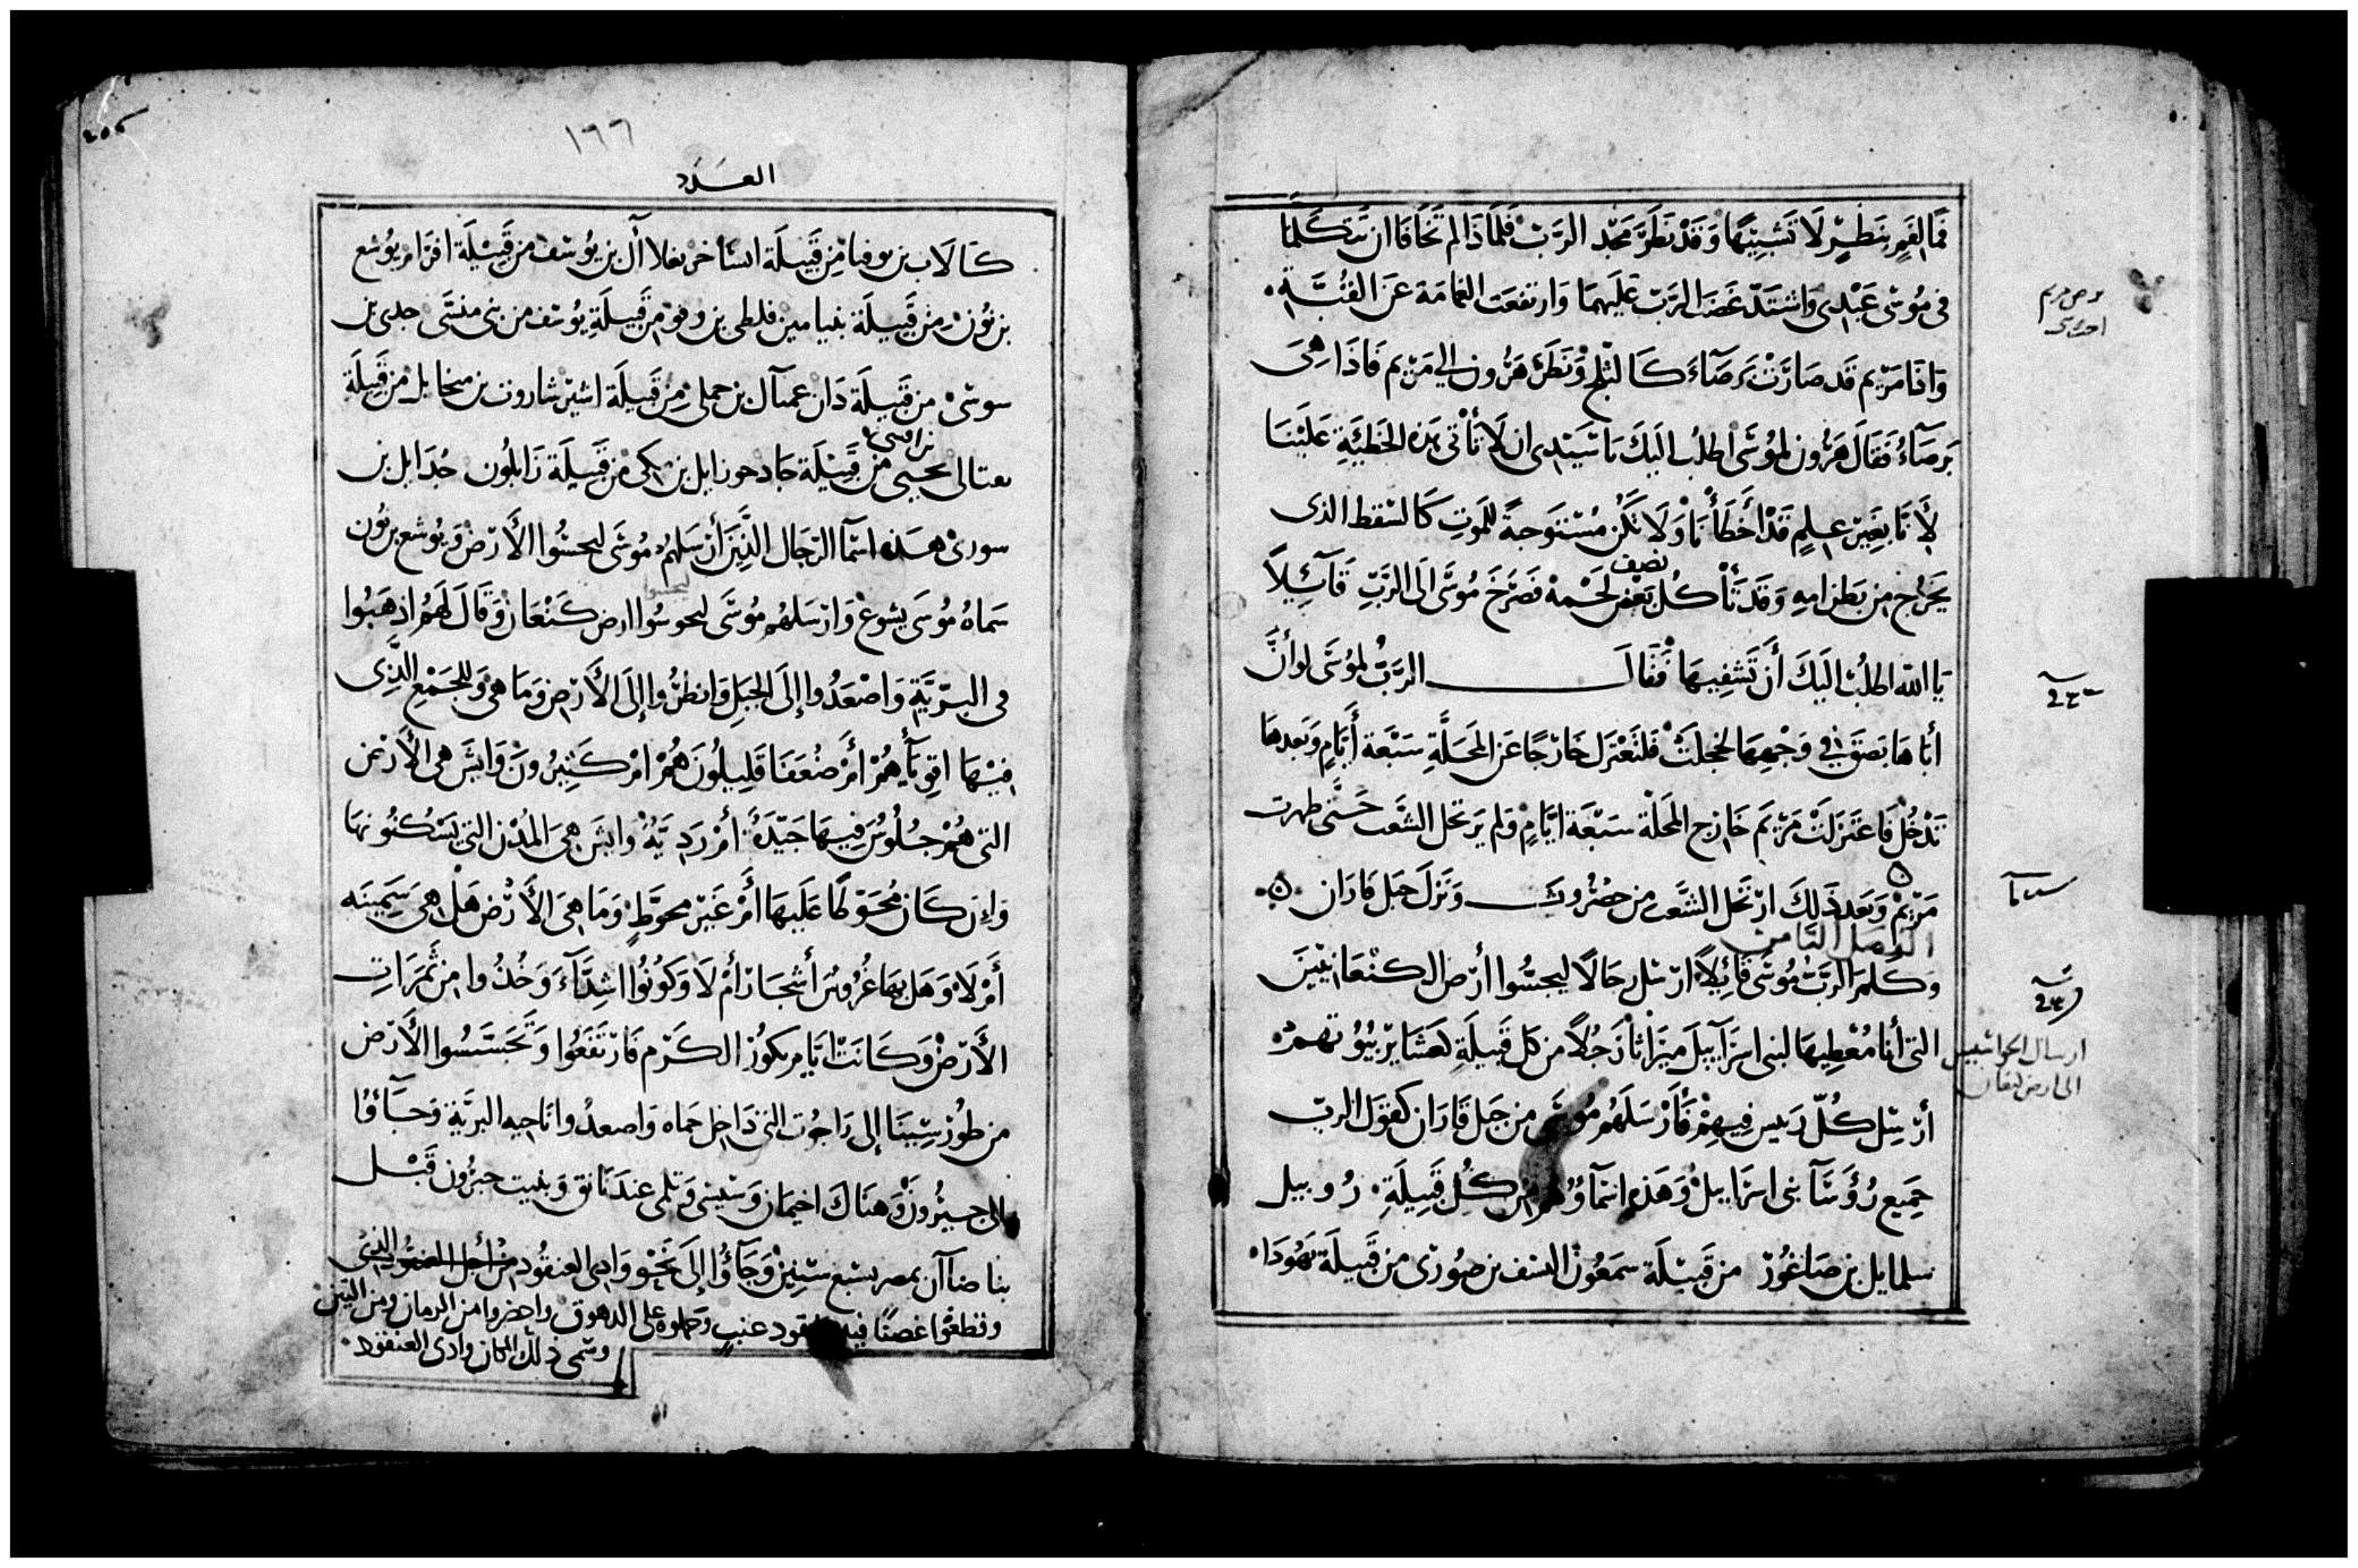 فما لفم بنظير لا تشبيها وقد نظر مجد الرب فلماذا لم تخافا ان تتكلما
في موسى عبدي واشتد غضب الرب عليهما وارتفعت الغامة عن القبة
واذا مريم قد صارت برصآء كالثلج ونظر هرون الي مريم فاذا هي
برصآء فقال هرون لموسى اطلب اليك يا سيدي ان لا تأتي بهذه الخطيئة علينا
لأنا بغير علم قد أخطأنا ولا تكن مستوجبة للموت كالسقط الذي
نصف
يخرج من بطن امه وقد تأكل بعض لحمه فصرخ موسى الى الرب قآئيلاً
يا الله اطلب اليك أن تشفيها فقال الرب لموسى لو أن
أباها بصق في وجهها لخجلت فلتعتزل خارجا عن المحلة سبعة أيام وبعدها
تدخل فاعتزلت مريم خارج المحلة سبعة ايام ولم يرتحل الشعب حتى طهرت
مريم وبعد ذلك ارتحل الشعب من حضروت ونزل جبل فاران
الفصل الثامن
وكلم الرب موسى قائلاً ارسل رجالا ليجسوا أرض الكنعانيين
التي أنا معطيها لبني اسرآييل ميراثا رجلاً من كل قبيلة لعشاير بيوتهم
ارسال الجواسيس
الى ارض كنعان
أرسل كل رييس فيهم فأرسلهم موسى من جبل فاران كقول الرب
جميع رؤسآ بني اسراييل وهذه اسمآوهم من كل قبيلة روبيل
سلمايل بن صاغور من قبيلة سمعون السف بن صوري من قبيلة يهودا
١٦٦
العدد
كالاب بن يوفنا من قبيلة اساخر نغلاآل بن يوسف من قبيلة افرام يوشع
بن نون من قبيلة بنيامين فلطي بن روفو من قبيلة يوسف من بني منسى جدي بن
سوسى من قبيلة دان عميآل بن حملي من قبيلة اشير شاروت بن ميخايل من قبيلة
نفتالي يحيى من قبيلة جاد حوزايل بن اكي من قبيلة زابلون جدايل بن
سوري هذه اسمآ الرجال الذين أرسلهم موسى ليجسوا الأرض ويوشع بن نون
ليجسوا
سماه موسى يشوع وارسلهم موسى ليجوسوا ارض كنعان وقال لهم اذهبوا
في البرية واصعدوا إلى الجبل وانظروا إلى الأرض وما هي وللجمع الذي
فيها اقويآء هم أم ضعفا قليلون هم ام كثيرون وايش هي الأرض
التي هم جلوس فيها جيدة أم ردية وايش هي المدن التي يسكنونها
وإن كان محوطا عليها أم غير محوط وما هي الأرض هل هي سمينه
أم لا وهل بها غروس أشجار أم لا وكونوا اشدآء وخذوا من ثمرات
الأرض وكانت ايام بكور الكرم فارتفعوا وتجسسوا الأرض
من طور سينا إلى راجوت التي داخل حماه واصعدوا ناحيه البرية وجآؤا
الى حبرون وهناك اخيمان وسيسي وتلمي عند ناتق وبنيت حبرون قبل
بنا ضاآن بمصر بسبع سنين وجآؤا إلى نحو وادي العنقود من أجل العنقود الذي
وقطفوا غصنا فيه عنقود عنب وحملوه على الدهوق واحضروا من الرمان ومن التين
وسمى ذلك المكان وادي العنقود